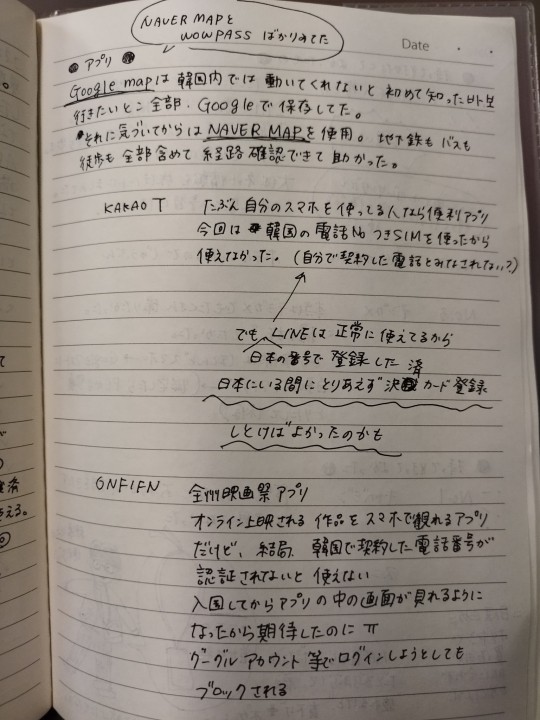 NAVER MAPと
WOWPASS ばかりみてた
Date ・ ・
● アプリ ●
Google mapは韓国内では動いてくれないと初めて知った
行きたいとこ全部、Googleで保存してた。
それに気づいてからはNAVER MAPを使用。地下鉄もバスも
徒歩も全部含めて経路確認できて助かった。
KAKAO T たぶん自分のスマホを使ってる人なら便利アプリ
今回は韓国の電話NoつきSIMを使ったから
使えなかった。(自分で契約した電話とみなされない?)
でも、LINEは正常に使えてるから
日本の番号で登録した
済
日本にいる間にとりあえず決カード登録
しとけばよかったのかも
ONFIFN 全州映画祭アプリ
オンライン上映される作品をスマホで観れるアプリ
だけど、結局、韓国で契約した電話番号が
認証されてないと使えない
入国してからアプリの中の画面が見れるように
なったから期待したのに π
グーグルアカウント等でログインしようとしても
ブロックされる